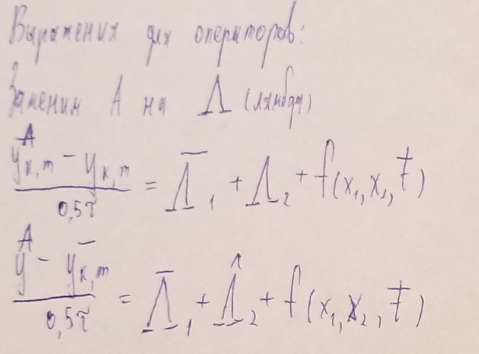 Выражения для операторов:
Заменим А на Λ (лямбда)
(y̅^A_{k,m} − y_{k,m}) / 0,5τ = Λ̅₁ + Λ₂ + f(x₁, x₂, t̅)
(ŷ − y̅_{k,m}) / 0,5τ = Λ̅₁ + Λ̂₂ + f(x₁, x₂, t̅)